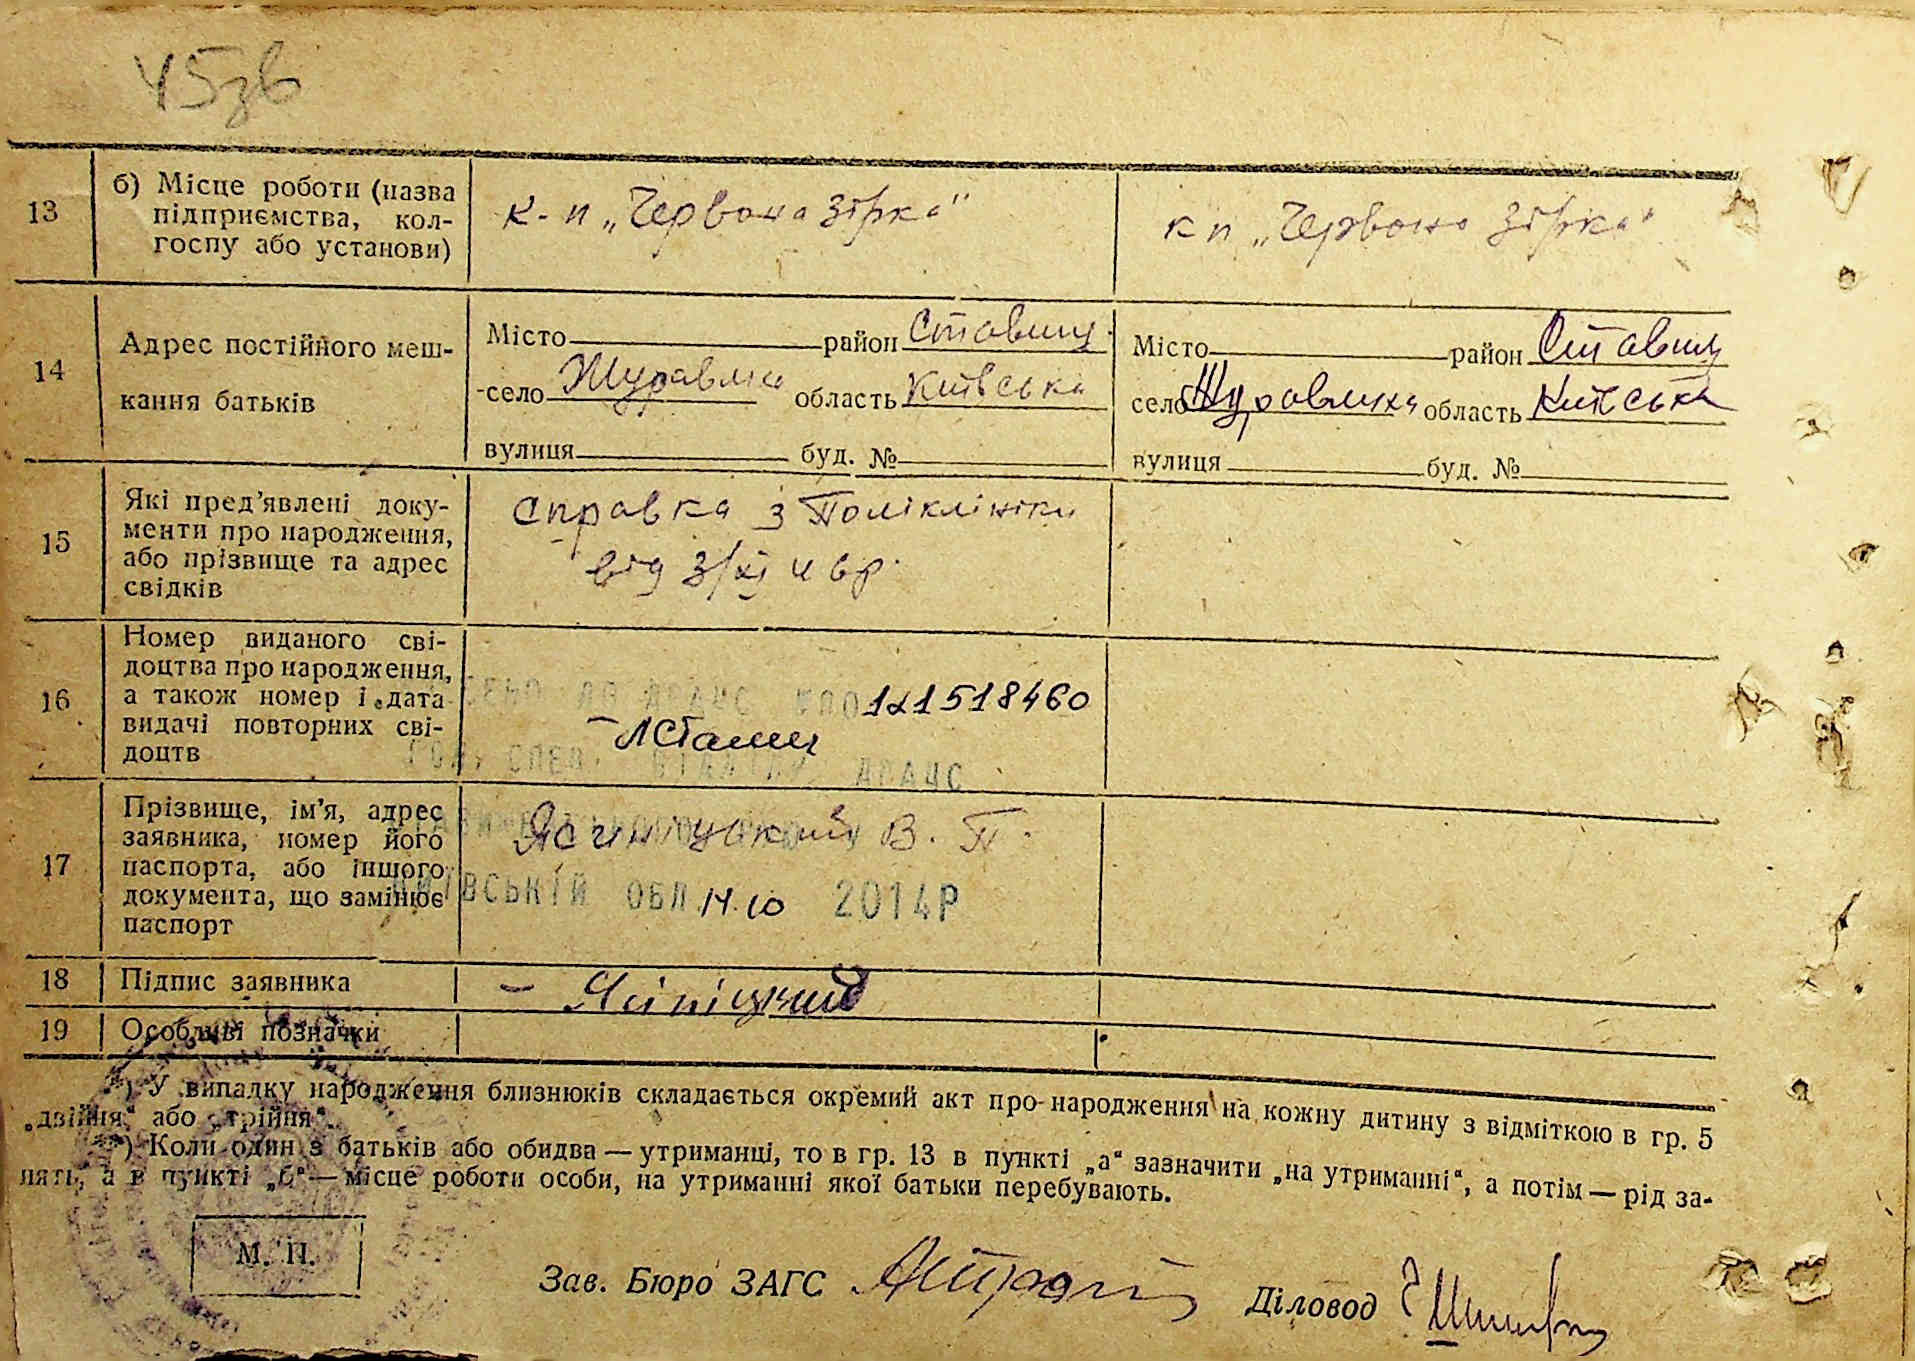 45зв
13
б) Місце роботи (назва
підприємства, кол-
госпу або установи)
к-п „Червона Зірка"
к п „Червона Зірка"
14
Адрес постійного меш-
кання батьків
Місто район Ставищ.
село Журавлиха область Київська
вулиця буд. №
Місто район Ставищ
село Журавлиха область Київська
вулиця буд. №
15
Які пред'явлені доку-
менти про народження,
або прізвище та адрес
свідків
справка з Поліклініки
від 3/XI
16
Номер виданого сві-
доцтва про народження,
а також номер і дата
видачі повторних сві-
доцтв
ДРАЦС
518460
СПЕЦ. ВІДДІЛУ ДРАЦС
17
Прізвище, ім'я, адрес
заявника, номер його
паспорта, або іншого
документа, що замінює
паспорт
В. П.
КИЇВСЬКІЙ ОБЛ 14.10 2014Р
18
Підпис заявника
19
Особливі позначки
*) У випадку народження близнюків складається окремий акт про народження на кожну дитину з відміткою в гр. 5
„двійня" або „трійня".
**) Коли один з батьків або обидва — утриманці, то в гр. 13 в пункті „а" зазначити „на утриманні", а потім — рід за-
нять, а в пункті „б" — місце роботи особи, на утриманні якої батьки перебувають.
М. П.
Зав. Бюро ЗАГС
Діловод